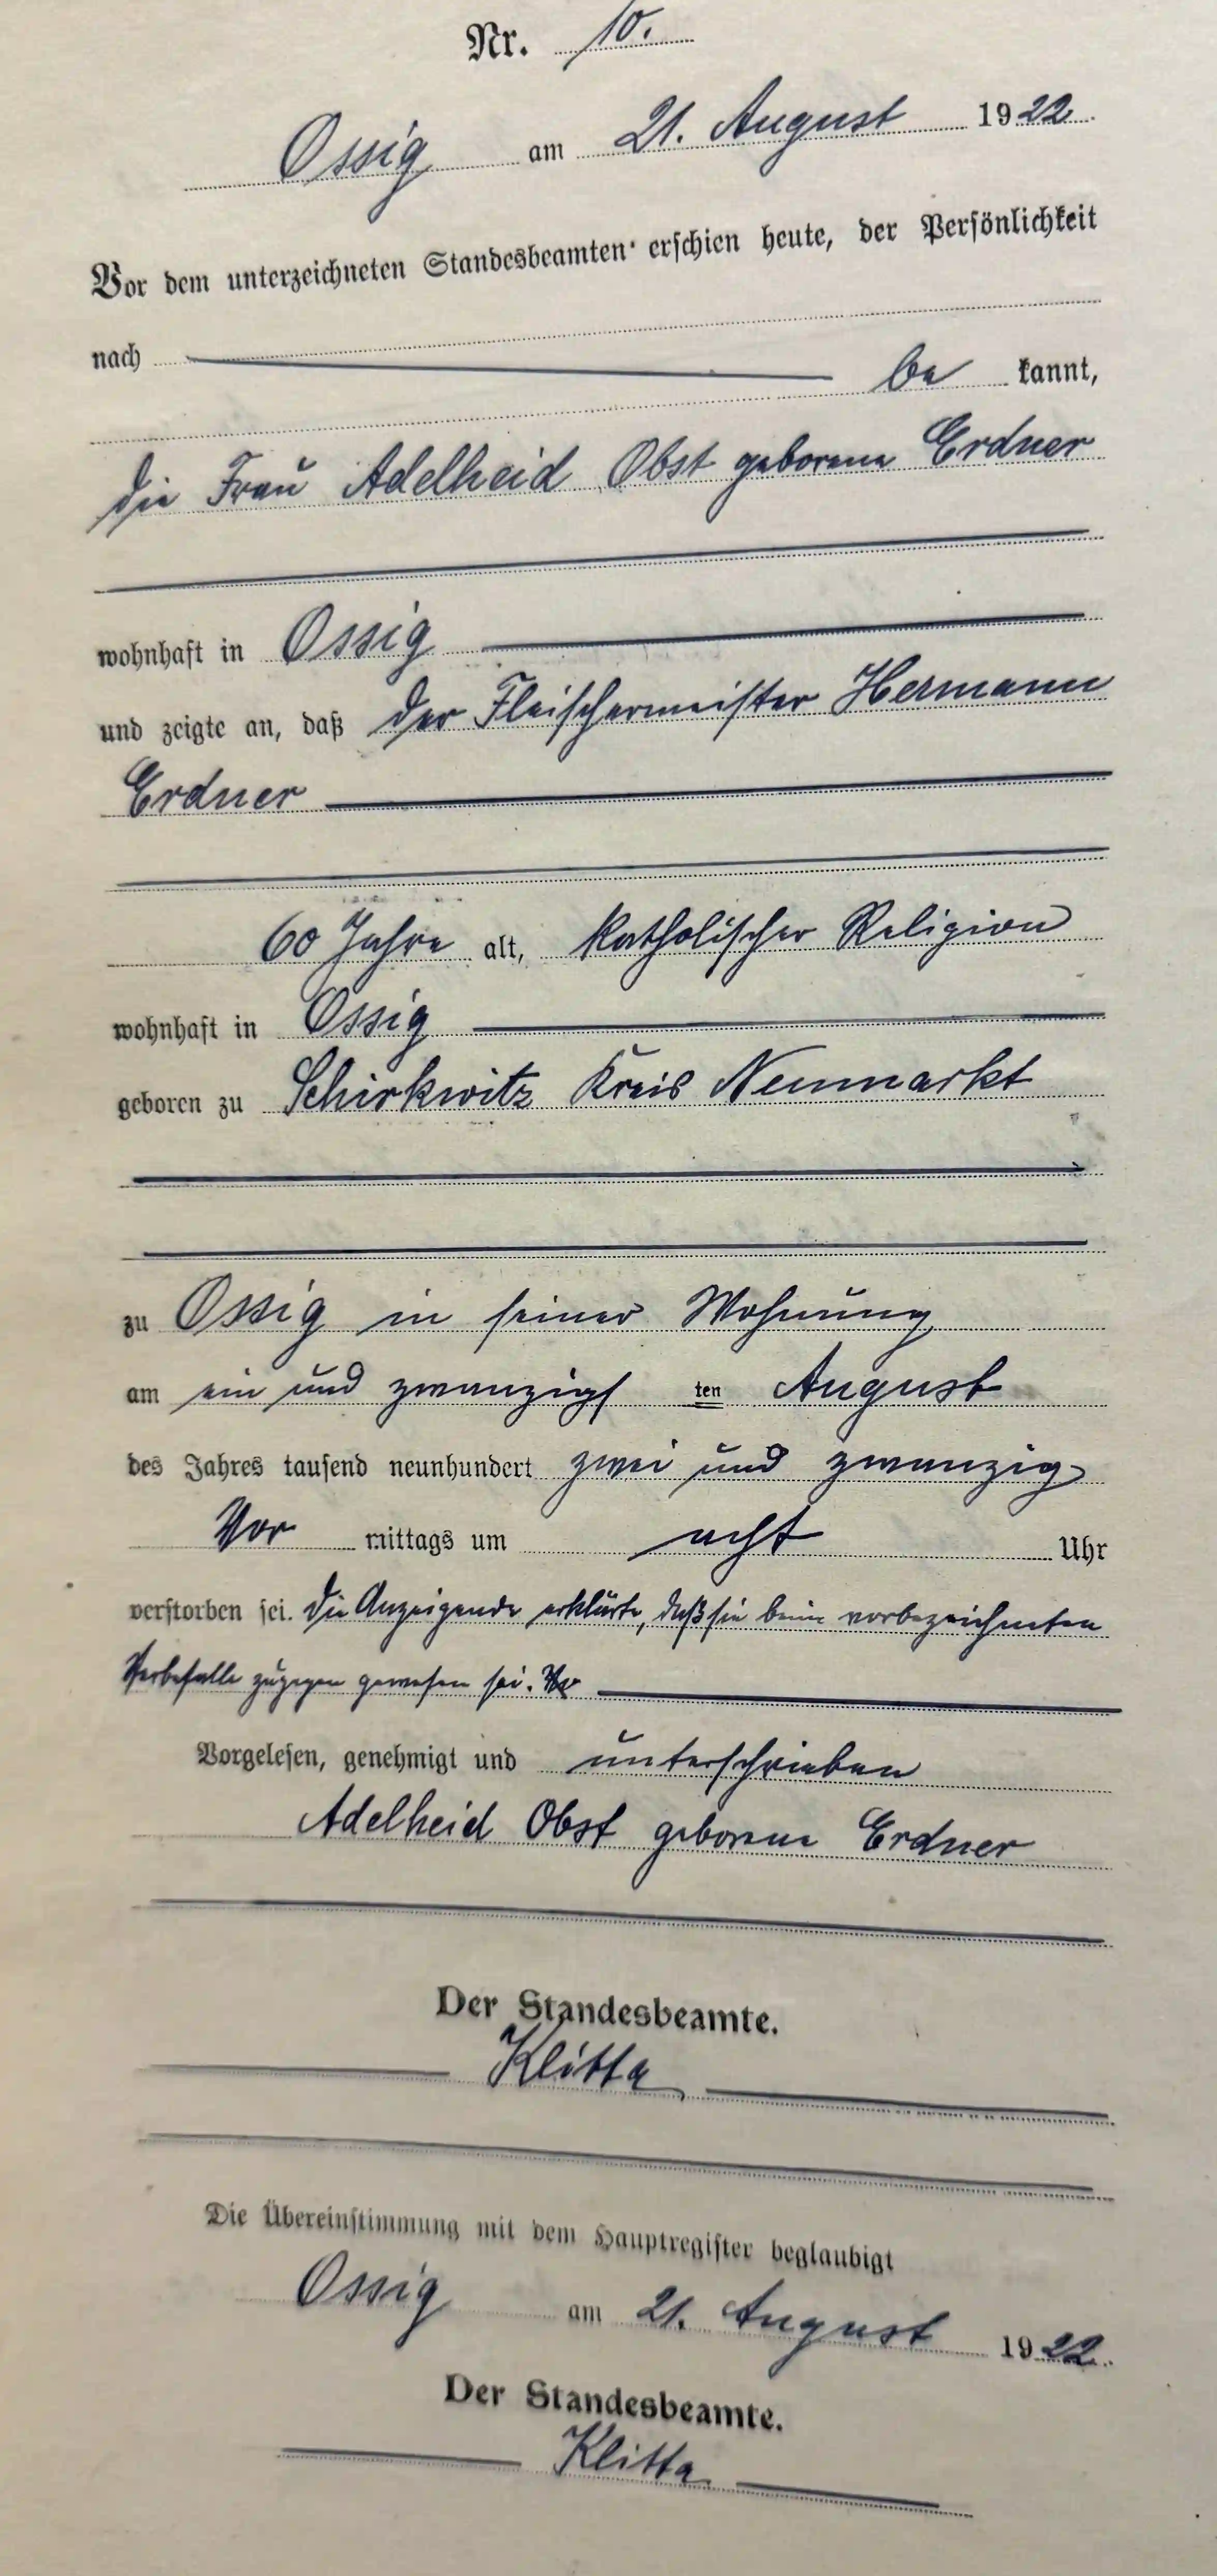 Nr. 10.
Ossig am 21. August 1922.
Vor dem unterzeichneten Standesbeamten erschien heute, der Persönlichkeit
nach
be kannt,
die Frau Adelheid Obst geborene Erdner
wohnhaft in Ossig
und zeigte an, daß der Fleischermeister Hermann
Erdner
60 Jahre alt, katholischer Religion
wohnhaft in Ossig
geboren zu Schirkwitz Kreis Neumarkt
zu Ossig in seiner Wohnung
am ein und zwanzigs ten August
des Jahres tausend neunhundert zwei und zwanzig
Vor mittags um acht Uhr
verstorben sei. Die Anzeigende erklärte, daß sie beim vorbezeichneten
Sterbefalle zugegen gewesen sei.
Vorgelesen, genehmigt und unterschrieben
Adelheid Obst geborene Erdner
Der Standesbeamte.
Klitta
Die Übereinstimmung mit dem Hauptregister beglaubigt
Ossig am 21. August 1922.
Der Standesbeamte.
Klitta